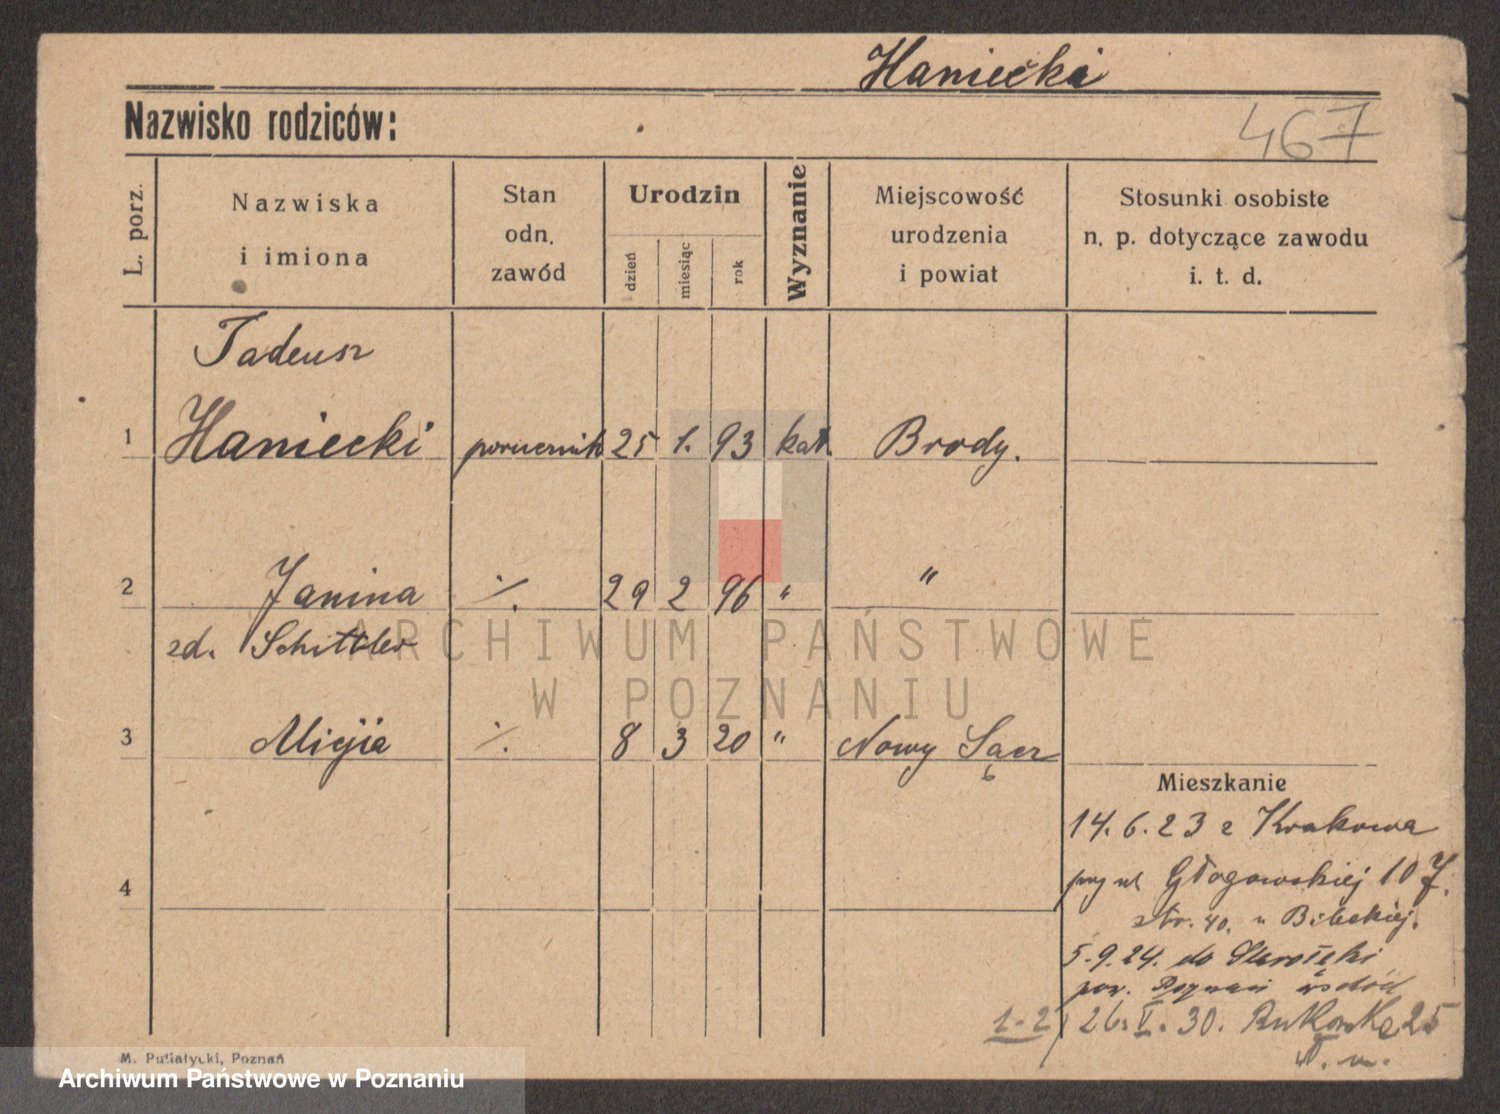 Haniecki
Nazwisko rodziców:
467
L. porz.
Nazwiska
i imiona
Stan
odn.
zawód
Urodzin
dzień
miesiąc
rok
Wyznanie
Miejscowość
urodzenia
i powiat
Stosunki osobiste
n. p. dotyczące zawodu
i. t. d.
Tadeusz
1 Haniecki porucznik 25 1. 93 kat. Brody.
2 Janina ·/. 29 2 96 " "
zd. Schittler
ARCHIWUM PAŃSTWOWE
W POZNANIU
3 Alicja ·/. 8 3 20 " Nowy Sącz
Mieszkanie
14.6.23 z Krakowa
przy ul Głogowskiej 107.
4
str. 40. u Bileckiej.
5.9.24. do Starołęki
pow. Poznań
1-2 26.V.30. 25
M. Putiatycki, Poznań
Archiwum Państwowe w Poznaniu